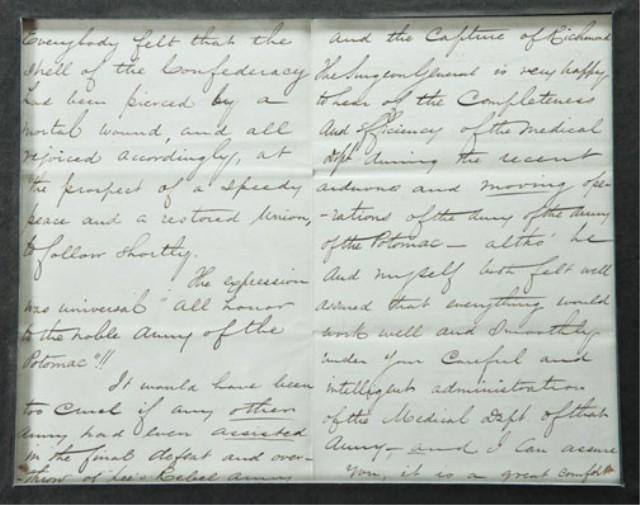 Everybody felt that the
shell of the Confederacy
had been pierced by a
mortal wound, and all
rejoiced accordingly, at
the prospect of a speedy
peace and a restored Union,
to follow shortly.
The expression
was universal "all honor
to the noble Army of the
Potomac"!!
It would have been
too cruel if any other
Army had even assisted
in the final defeat and over-
-throw of Lee's Rebel Army
and the Capture of Richmond
The Surgeon General is very happy
to hear of the Completeness
and Efficiency of the Medical
Dept during the recent
arduous and moving ope-
-rations of the Army of the Army
of the Potomac — altho' he
and myself both felt well
assured that everything would
work well and smoothly
under your Careful and
intelligent administration
of the Medical Dept. of that
Army — and I Can assure
you, it is a great comfort